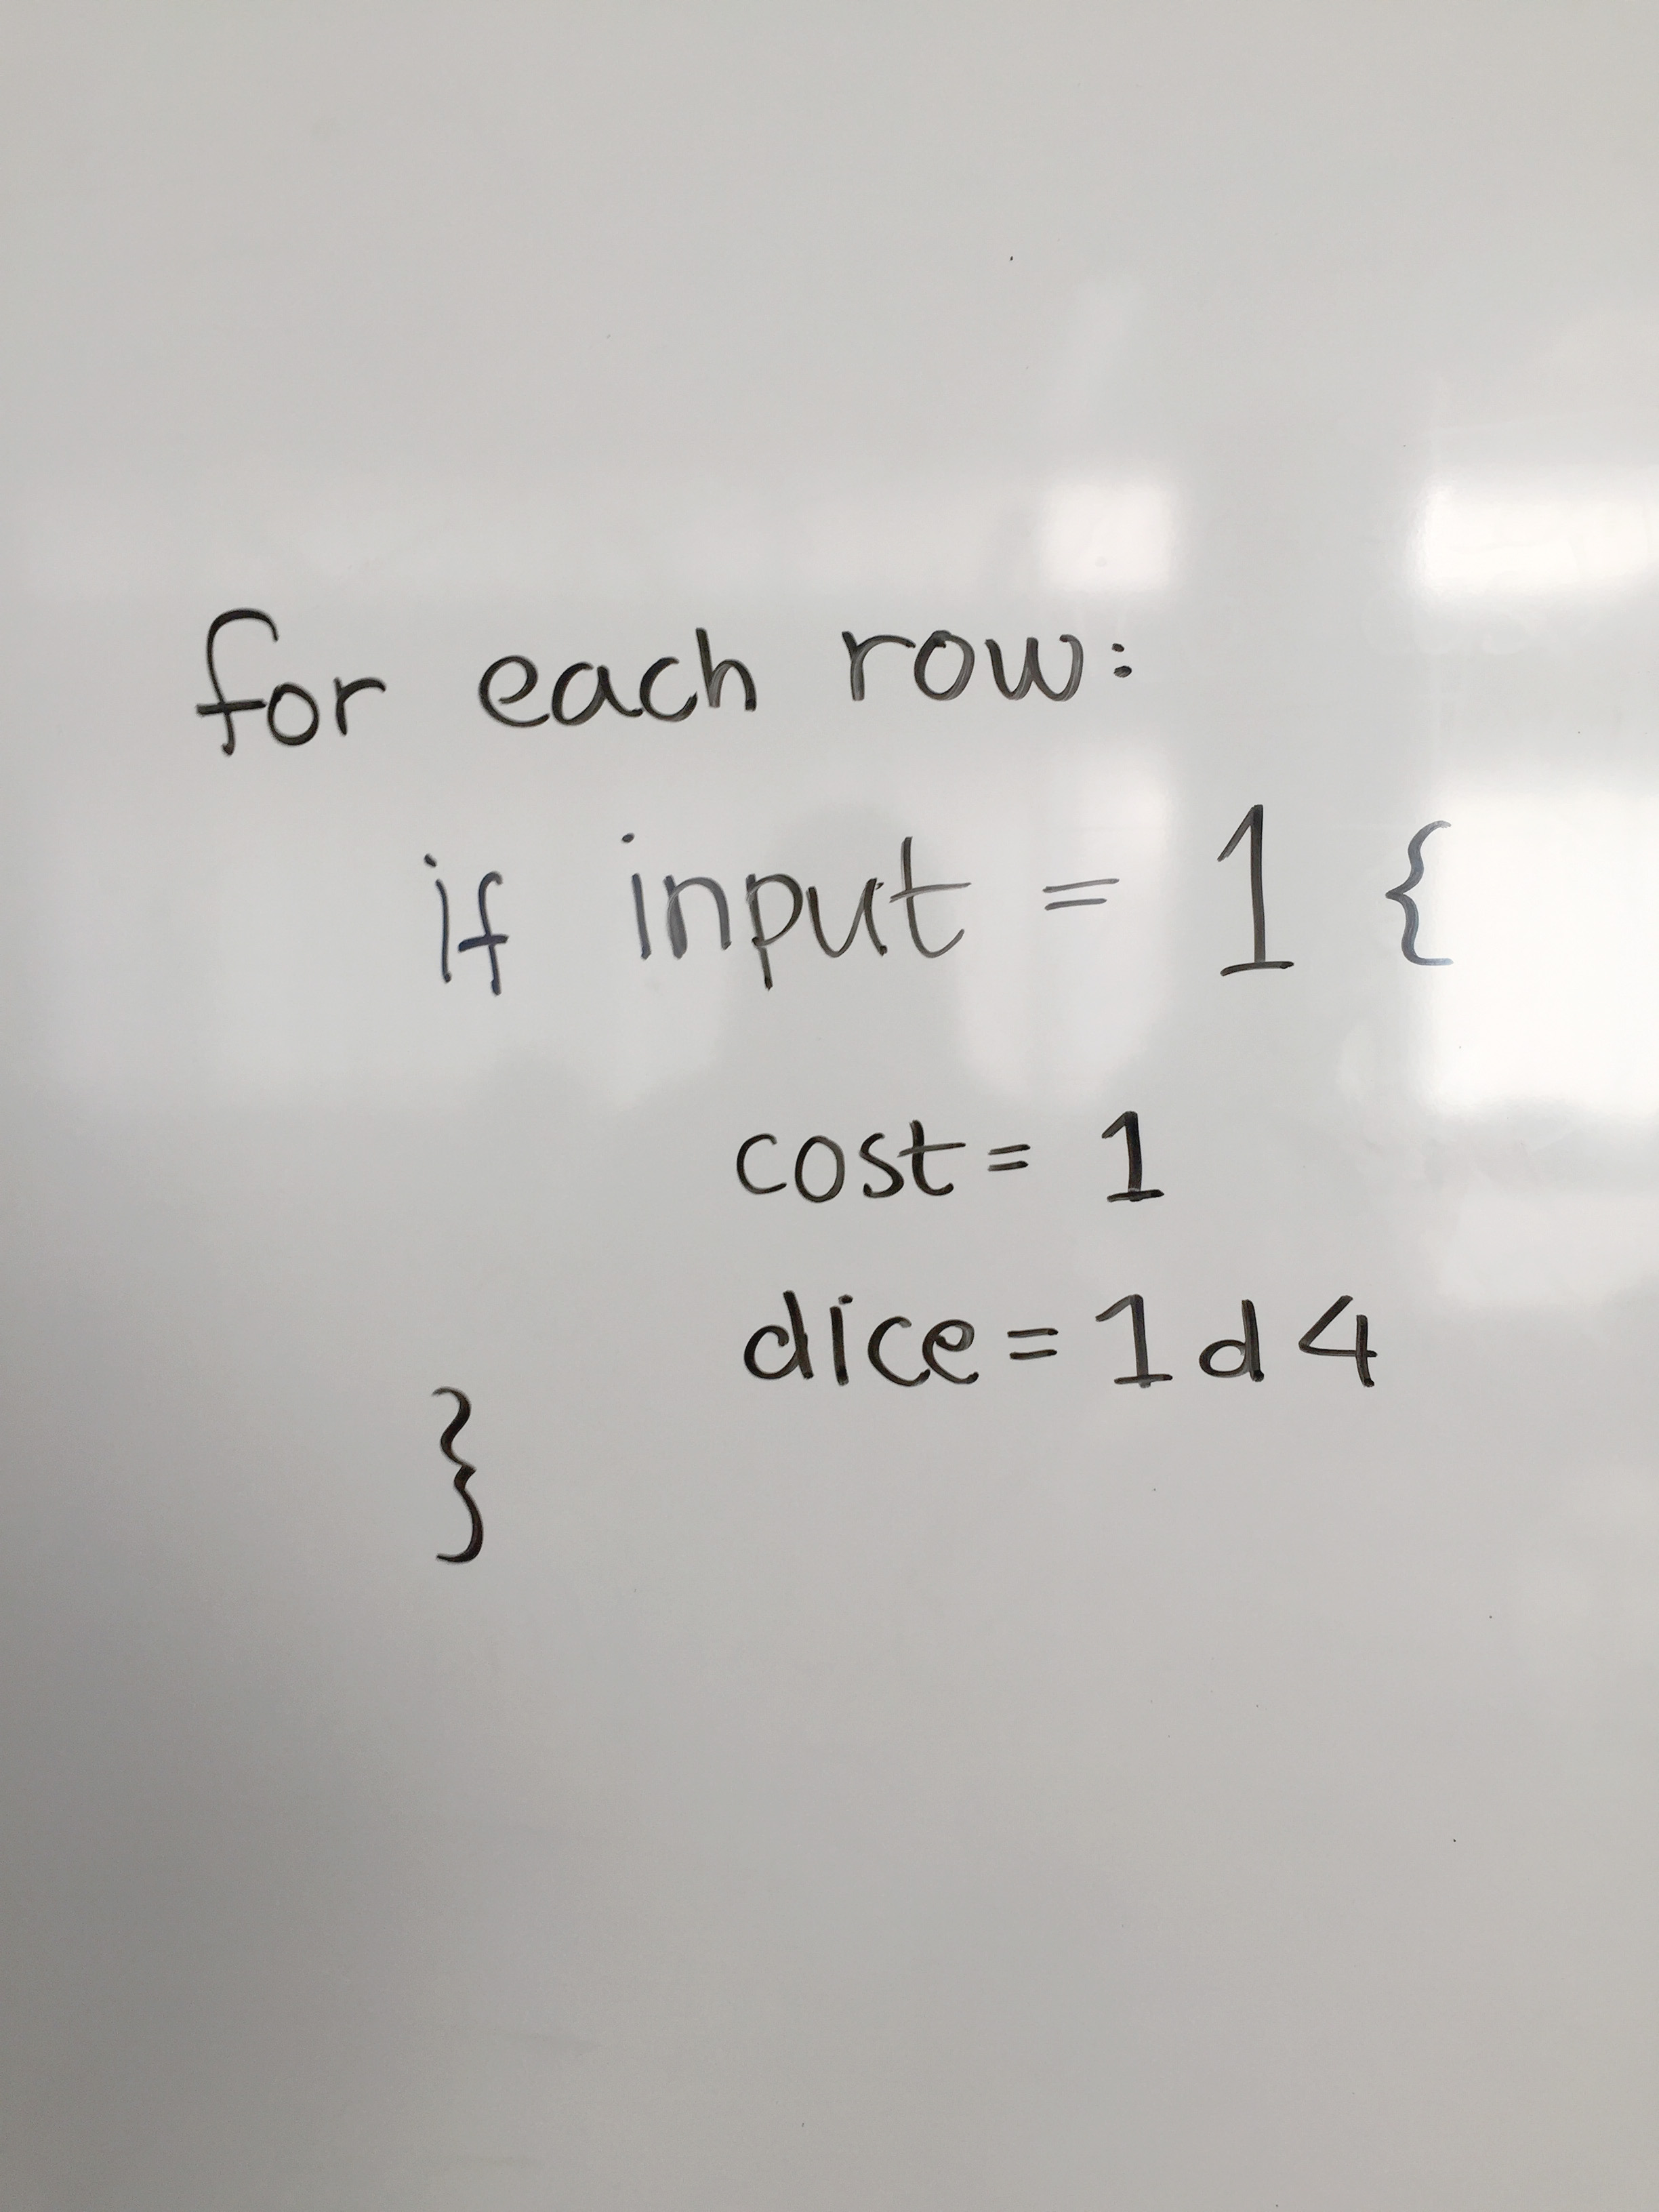 for each row:
if input = 1 {
cost = 1
dice = 1d4
}